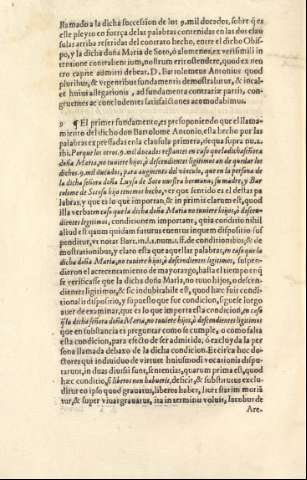 llamado a la dicha succession de los 9. mil ducados, sobre q̃ es
este pleyto en força de las palabras contenidas en las dos clau
sulas arriba referidas del contrato hecho, entre el dicho Obis-
po, y la dicha doña Maria de Soto, ò alomenos, ex verisimili in
tentione contrahentium, nostrum erit ostendere, quod ex nen
cro capite admitti debeat. D. Bartolomeus Antonius quod
pluribus, & vrgentibus fundamentis demonstrabitur, & incal
et huius allegationis, ad fundamenta contrariæ partis, con-
gruentes ac concludentes satisfactiones acomodabimus.
9 ¶ El primer fundamento, es presuponiendo que el llama-
miento del dicho don Bartolome Antonio, esta hecho por las
palabras expressadas en la clausula primera, relata supra nu.
ibi. Porque los otros 9. mil ducados restantes en caso que la dicha señora
doña Maria, no tuviere hijos, ò descendientes legitimos an de quedar los
dichos 9. mil ducados, para augmento del vinculo, que en la persona de
la dicha señora doña Luysa de Soto nuestra hermana, su madre, y Bar
tolome de Soto su hijo tenemos hecho, ver que sentido es el destas pa
labras, y que es lo que importan, & in primis clarum est, quod
illa verba in caso que la dicha doña Maria no tuviere hijos, ò descen-
dientes legitimos, conditionem important, quia conditio nihil
aliud est quam quidam futurus euentus in quem dispositio sus
penditur, vt notat Bart. in l. 1. num. 1. ff. de conditionibus, & de
monstrationibus, y claro esta que aquellas palabras, en caso que la
dicha doña Maria, no tuviere hijos, ò descendientes legitimos, suspen-
dieron el acrecentamiento de mayorazgo, hasta el tiempo en q̃
se verificasse que la dicha doña Maria, no tuuo hijos, o descen-
dientes legitimos, & sic indubitabile est, quod hæc fuit condi-
tionalis dispositio, y supuesto que fue condicion, sigue se luego
auer de examinar, que es lo que importa esta condicion, en caso
q̃ la dicha señora doña Maria, no tuviere hijos, ò descendientes legitimos
que en substancia es preguntar como se cumple, o como falta
esta condicion, para efecto de ser admitida, ò excluyda la per
sona llamada debaxo de la dicha condicion. Et circa hoc do-
ctores qui indiuiduo de virtute huiusmodi vocationis dispu-
tarunt, in duas diuisi sunt, sententias, quarum prima est, quod
hæc conditio, si liberos non habuerit, deficit, & substitutus exclu
ditur eo ipso quod grauatus, liberos habet, licet statim morian
tur, & super viuat grauatus, ita in terminis voluit, Iacobus de
Are.